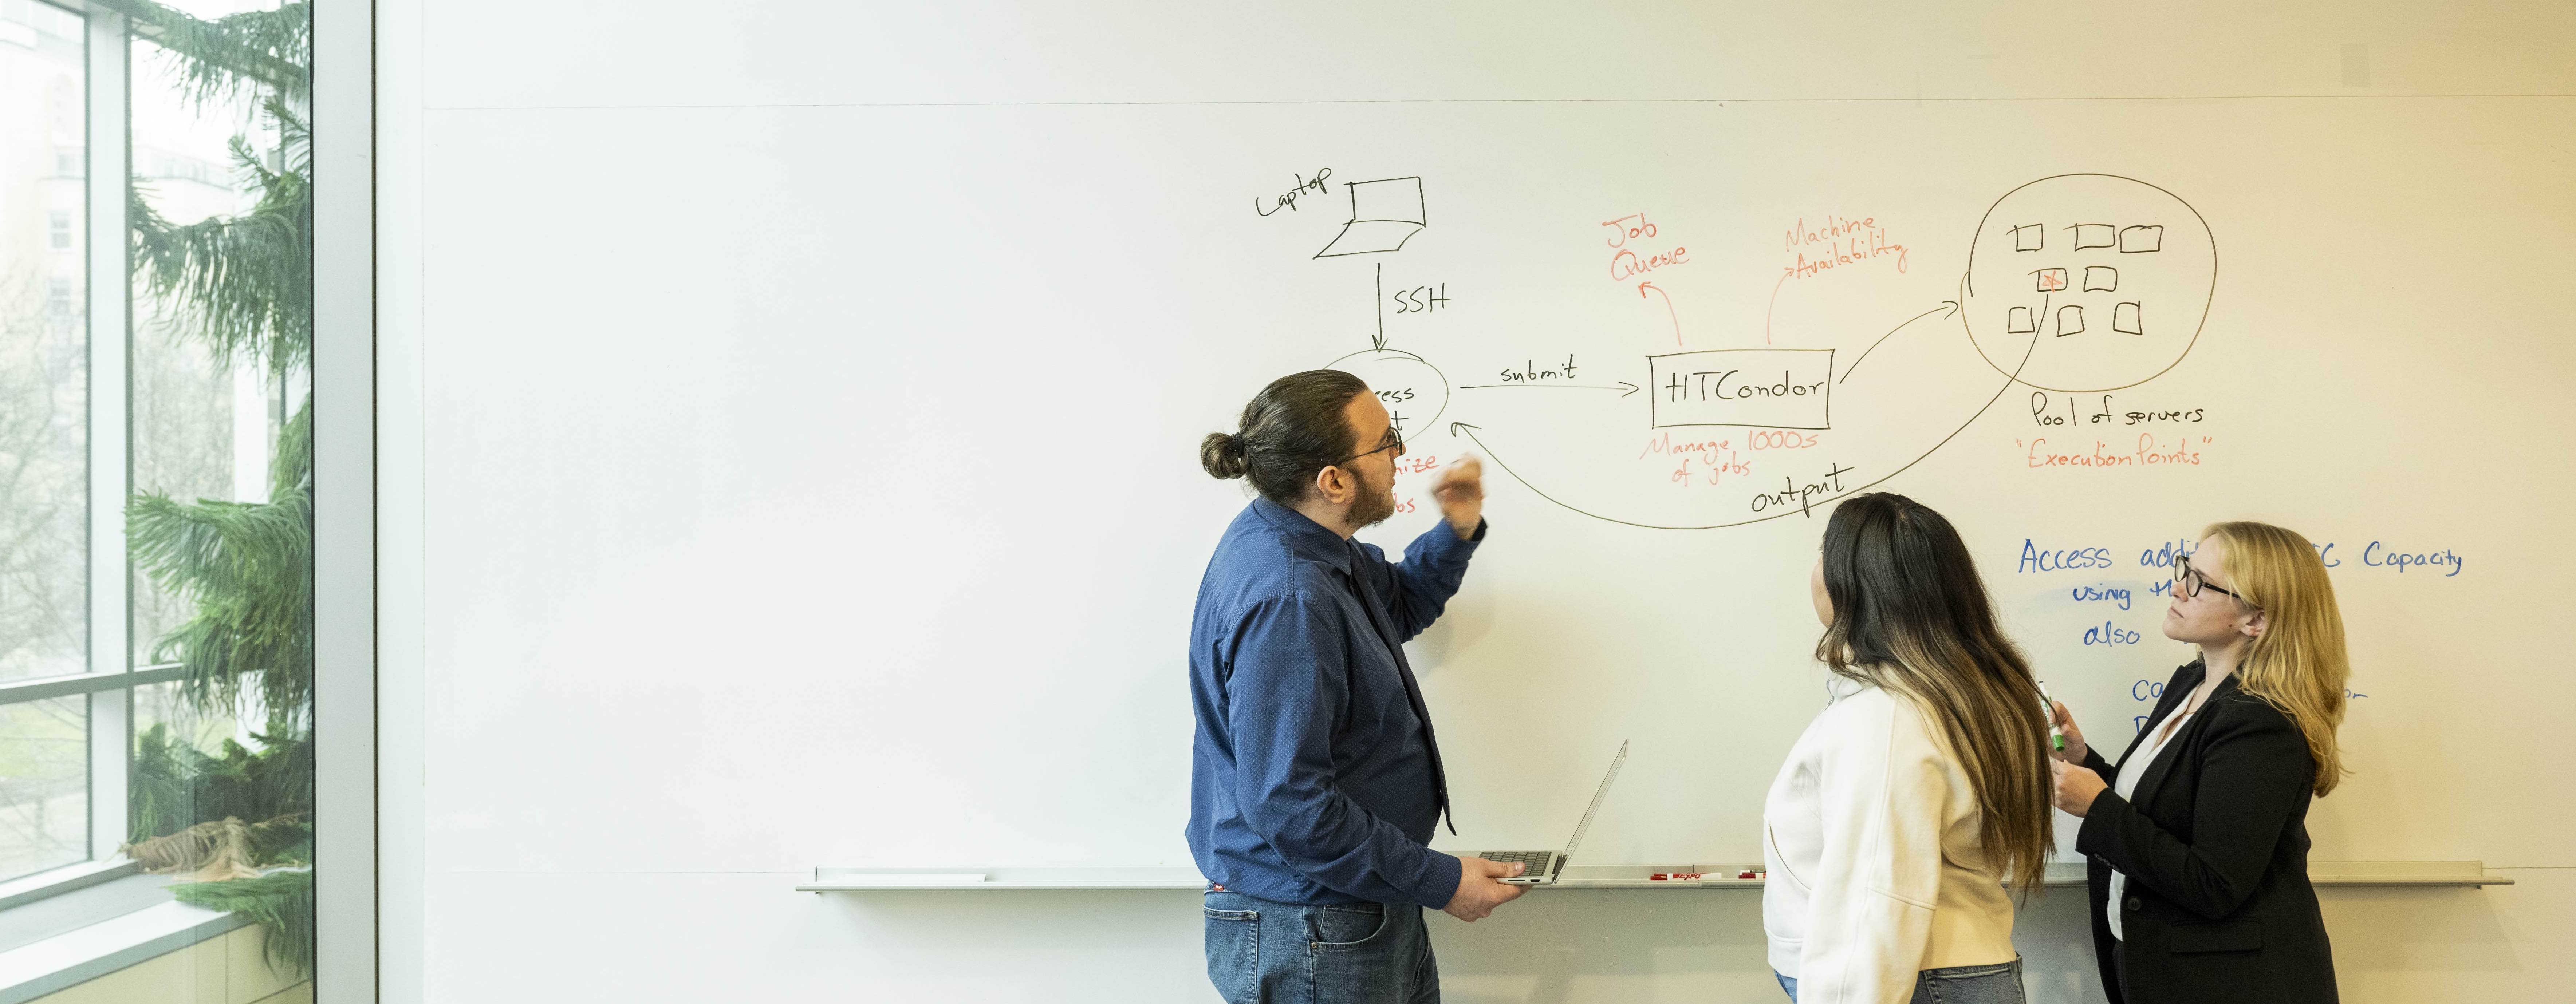 Laptop
SSH
ess
t
nize
bs
submit
Job
Queue
Machine
Availability
HTCondor
Manage 1000s
of jobs
output
Pool of servers
"Execution Points"
Access add C Capacity
using th
also
Ca or